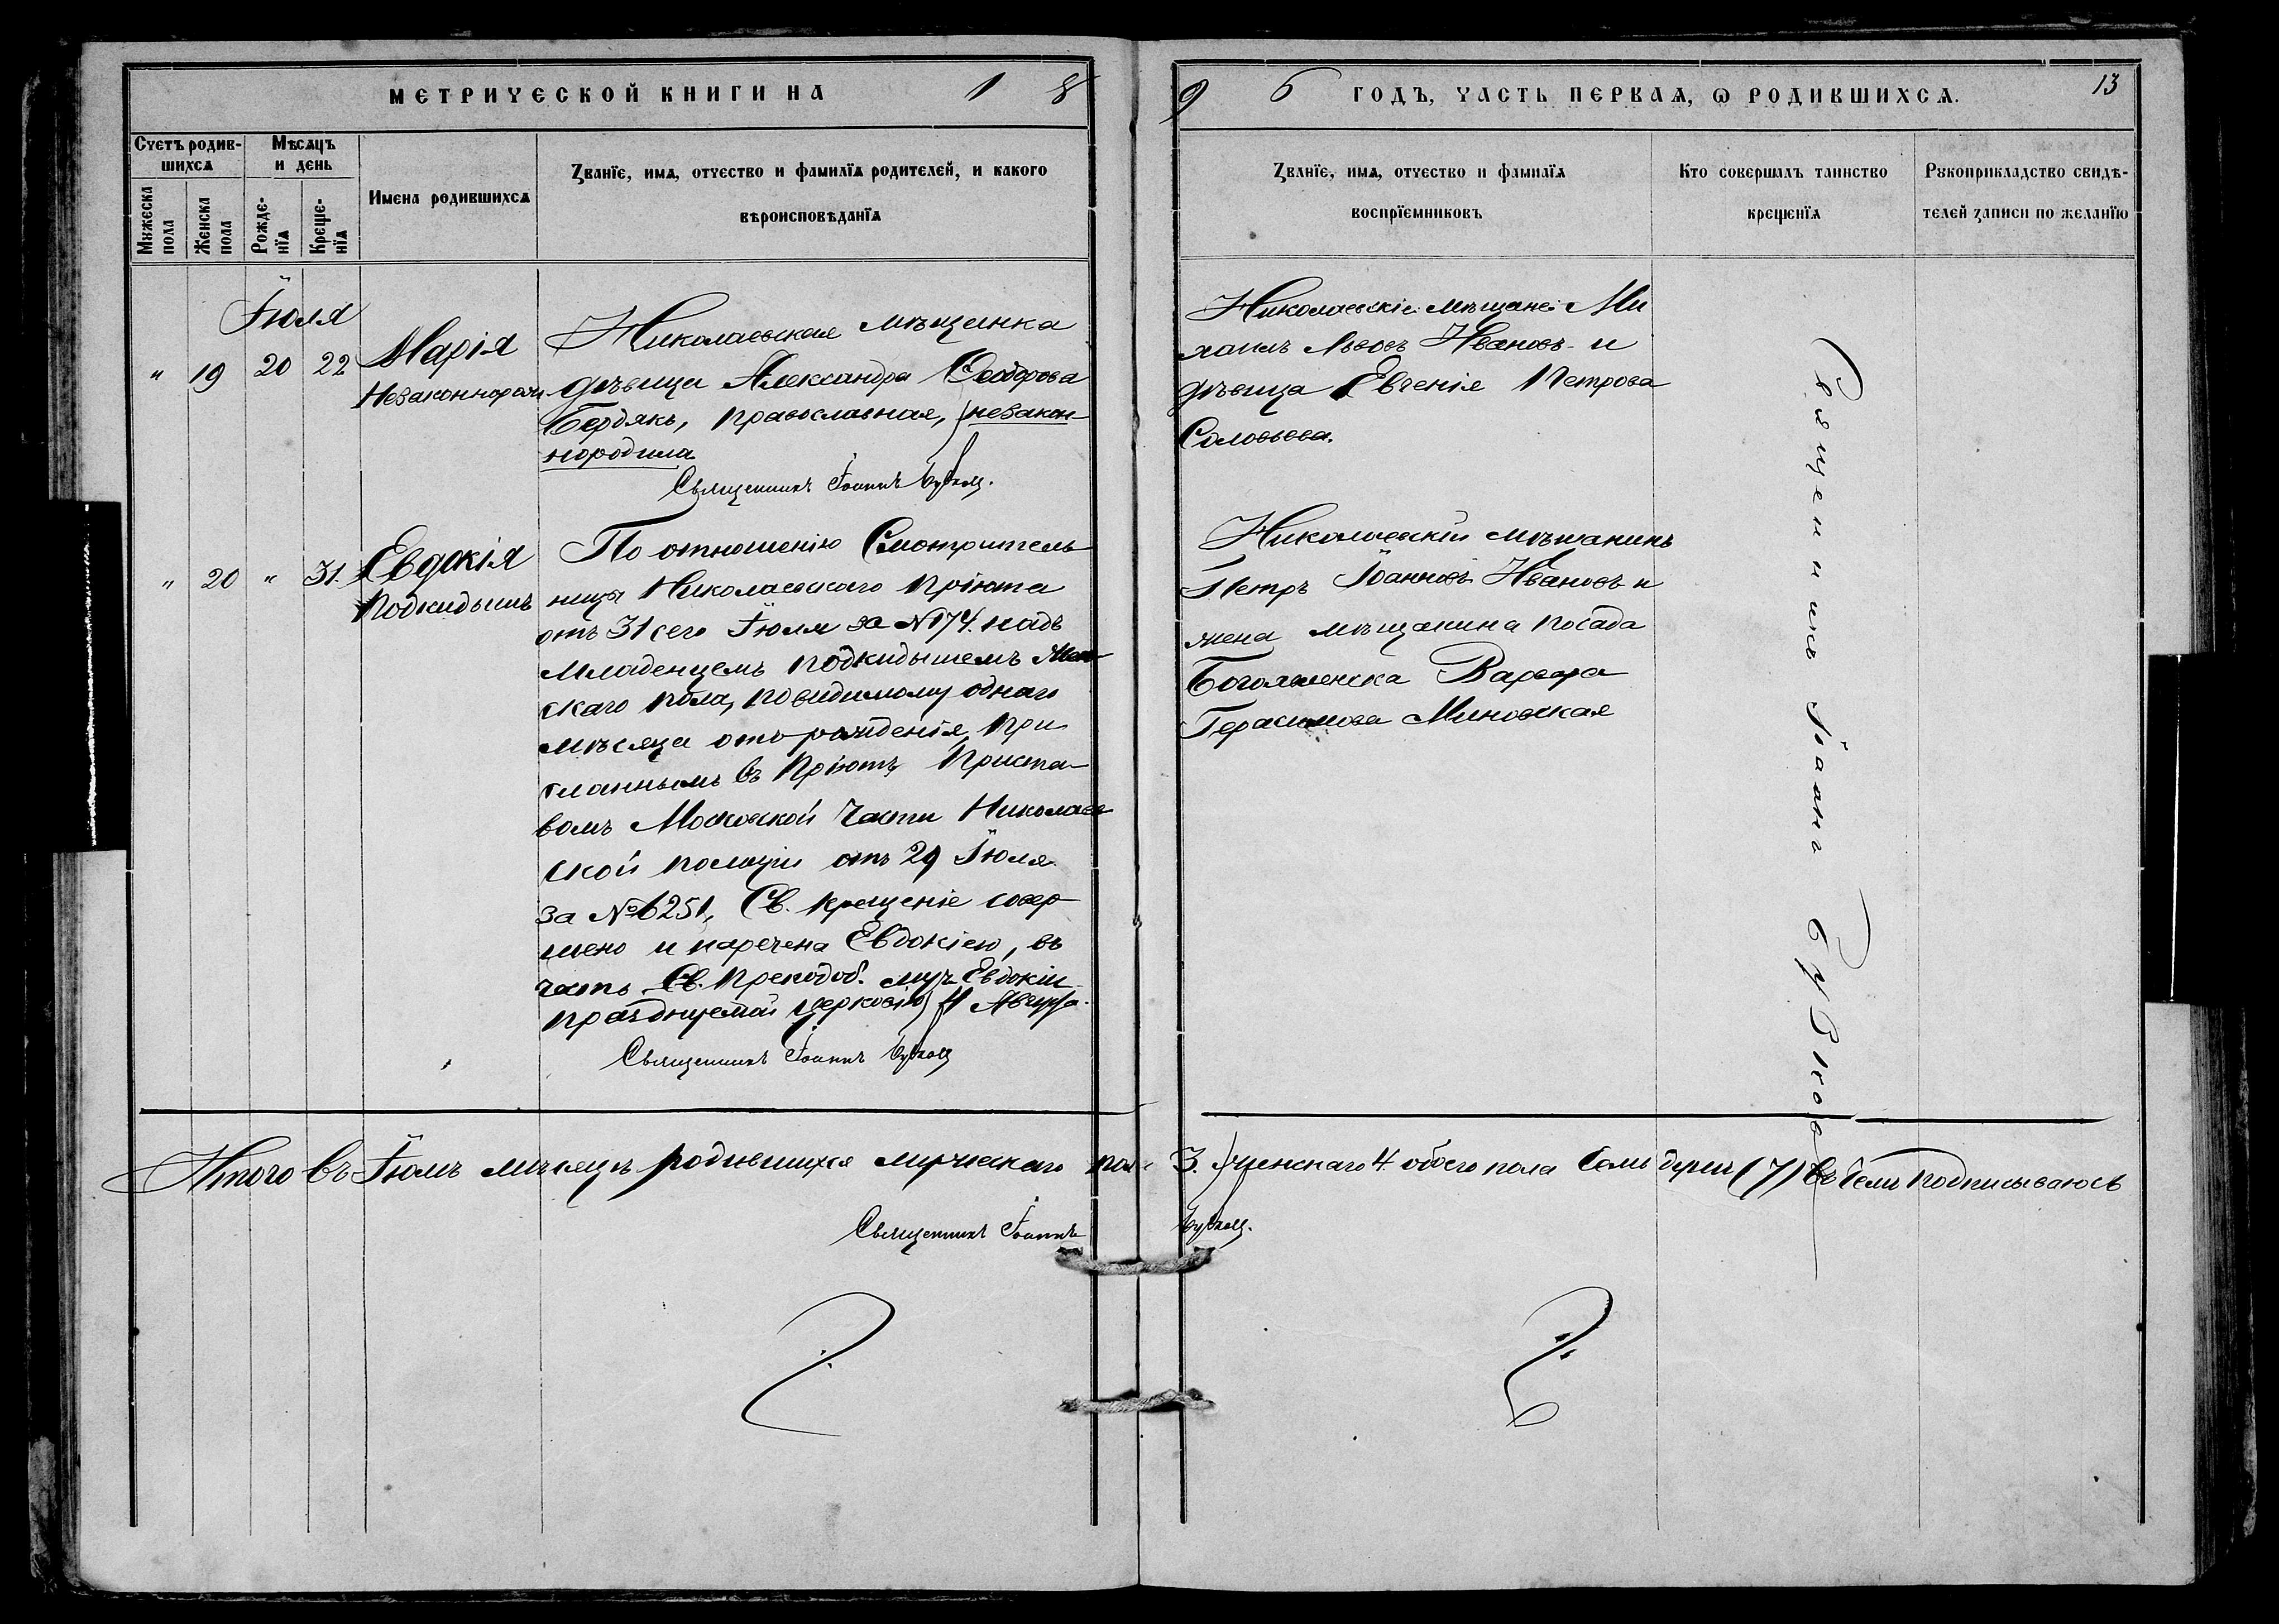 МЕТРИЧЕСКОЙ КНИГИ НА 18
96 ГОДЪ, ЧАСТЬ ПЕРВАЯ, Ѡ РОДИВШИХСЯ.
13
Счетъ родив-
шихся
Мужеска
пола
Женска
пола
Мѣсяцъ
и день
Рожде-
нїя
Креще-
нїя
Имена родившихся
Званїе, имя, отчество и фамилїя родителей, и какого
вѣроисповѣданїя
Званїе, имя, отчество и фамилїя
воспрїемниковъ
Кто совершалъ таинство
крещенїя
Рукоприкладство свидѣ-
телей записи по желанїю
Іюля
" 19 20 22
Марія
Незаконнорожд.
Николаевская мѣщанка
дѣвица Александра Ѳеодорова
Бердякъ, православная, незакон-
нородила
Священникъ Іоаннъ
Николаевскіе мѣщане: Ми
хаилъ Львовъ Ивановъ и
дѣвица Евгенія Петрова
Соловьева.
" 20 " 31.
Евдокія
Подкидышъ
По отношенію Смотритель
ницы Николаевскаго Пріюта
отъ 31 сего Іюля за № 174. надъ
Младенцемъ подкидышемъ Жен-
скаго пола, повидимому однаго
мѣсяца отъ рожденія, При
сланнымъ въ Пріютъ Приста-
вомъ Московской Части Николаев
ской полиціи отъ 29 Іюля
за № 6251, Св. крещеніе совер-
шено и наречена Евдокіею, въ
честь Св. Преподоб. муч. Евдокіи
празднуемой церковію 4 Августа.
Священникъ Іоаннъ
Николаевскій мѣщанинъ
Петръ Іоанновъ Ивановъ и
жена мѣщанина посада
Богоявленска Варвара
Герасимова Миновская
Священникъ Іоаннъ
Итого въ Іюлѣ мѣсяцѣ родившихся мужескаго пола 3. женскаго 4. обоего пола Семь душъ (7) въ чемъ подписываюсь
Священникъ Іоаннъ